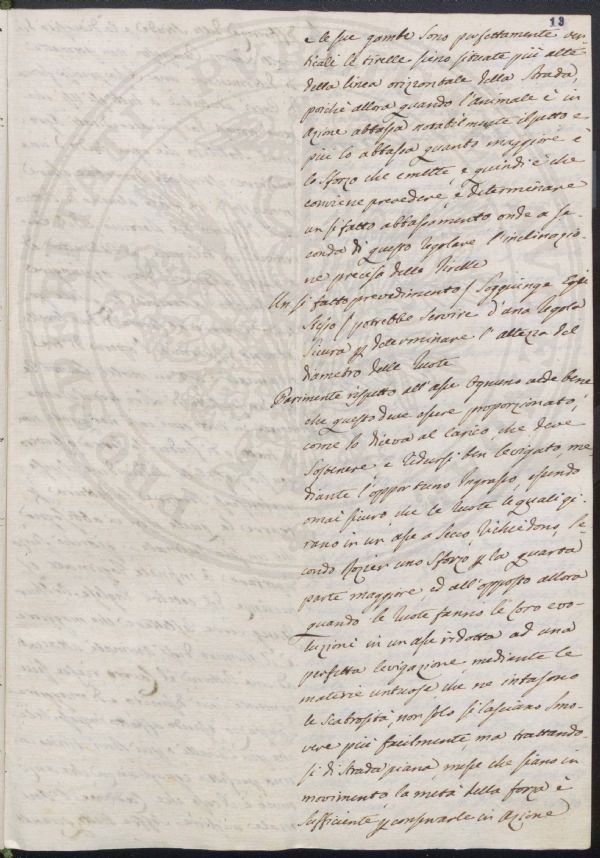 13
e le sue gambe sono perfettamente ver-
ticali le tirelle sieno situate più alte
della linea orizzontale della Strada,
poichè allora quando l'animale è in
azione abbassa notabilmente il petto e
più lo abbassa quanto maggiore è
lo sforzo che emette, e quindi è che
conviene prevedere, e determinare
un sì fatto abbassamento onde a se-
conda di questo regolare l'inclinazio-
ne precisa delle tirelle
Un sì fatto prevedimento / Soggiunge Egli
stesso / potrebbe servire d'una regola
sicura p determinare l'altezza del
diametro delle ruote
Parimente rispetto all'asse ognuno vede bene
che questo deve essere proporzionato,
come lo diceva al carico, che deve
sostenere e ridursi ben levigato, me-
diante l'opportuno ingrasso, essendo
omai sicuro che le ruote le quali gi-
rano in un asse a secco, richiedono, se-
condo Rozier uno sforzo p la quarta
parte maggiore, ed all'opposto allora
quando le ruote fanno le loro evo-
luzioni in un asse ridotto ad una
perfetta levigazione mediante le
materie untuose che ne intasono
le scabrosità, non solo si lasciano smo-
vere più facilmente, ma trattando-
si di strada piana, messe che siano in
movimento, la metà della forza è
sufficiente p conservarle in azione